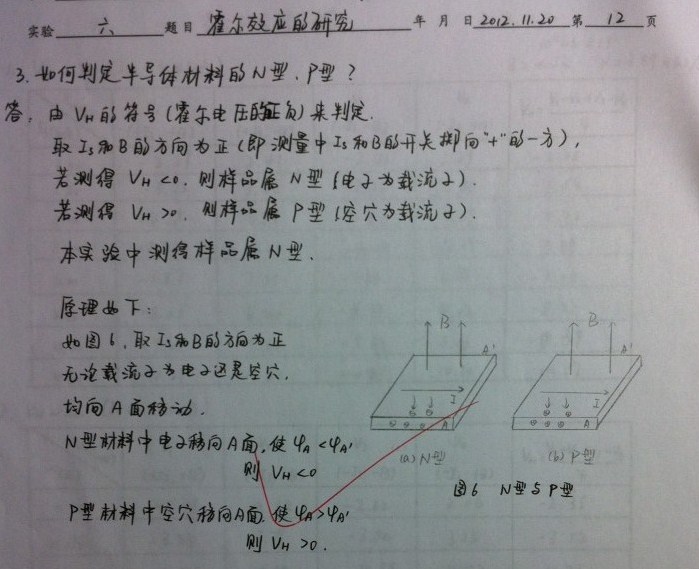 实验 六 题目 霍尔效应的研究 年 月 日 2012.11.20 第 12 页
3. 如何判定半导体材料的N型、P型？
答：由 V_H 的符号(霍尔电压的正负)来判定.
取 I_s 和 B 的方向为正(即测量中 I_s 和 B 的开关掷向"+"的一方),
若测得 V_H <0, 则样品属 N型 (电子为载流子).
若测得 V_H >0, 则样品属 P型 (空穴为载流子).
本实验中测得样品属N型.
原理如下:
如图6, 取 I_s 和 B 的方向为正
无论载流子为电子还是空穴,
均向A面移动.
N型材料中电子移向A面, 使 φ_A < φ_A'
则 V_H <0
P型材料中空穴移向A面, 使 φ_A > φ_A'
则 V_H >0.
B
A'
I
A
(a) N型
B
A'
I
A
(b) P型
图6 N型与P型